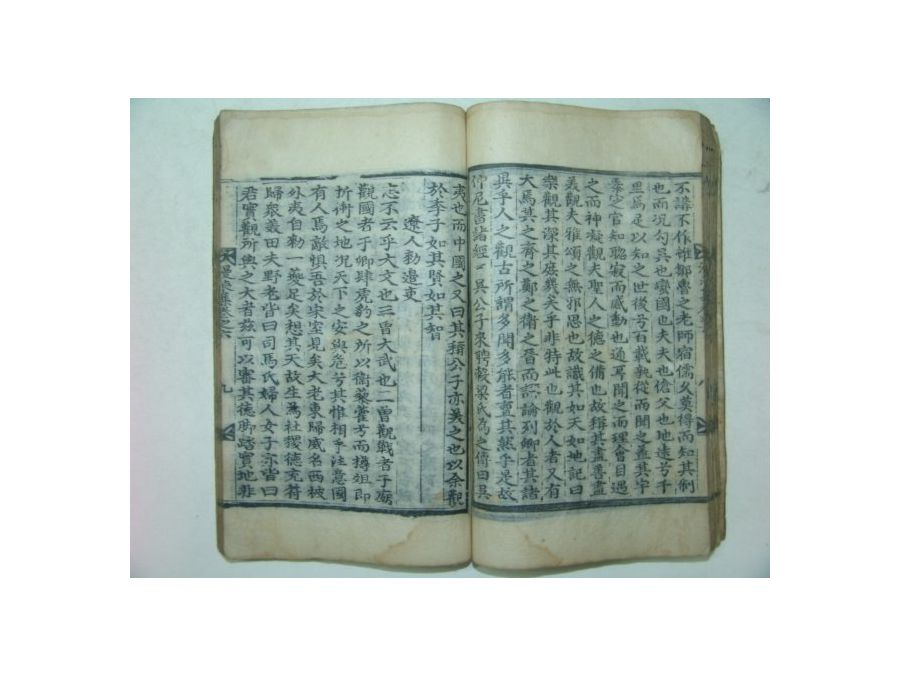 不講不作雖鄒魯之老師宿儒久莫得而知其制
也而况勾吳也蠻國也夫夫也傖父也地遠兮千
里焉足以知之世後兮百載孰從而聞之盖其宇
泰定官知聡寂而感動也通耳聞之而理會目遇
之而神凝觀夫聖人之德之備也故稱其盡善盡
義觀夫雅頌之無邪思也故識其如天如地記曰
樂觀其深其庶幾乎非特此也觀於人者又有
大焉其之齊之鄭之衛之晉而評論列卿者其諸
異乎人之觀古所謂多聞多能者亶其然乎是故
仲尼書諸經曰吳公子來聘穀梁氏爲之傳曰吳
夷也而中國之又曰其稱公子亦美之也以余觀
於季子如其賢如其智
遼人勑邊吏
忘不云乎大文也三曾大武也二曾觀戰者于廟
觀國者于卿肆虎豹之所以衛藜藿兮而樽俎卽
折衝之地况天下之安與危兮其惟相乎注意國
有人焉敵愼吾於宋室見矣大老東歸威名西被
外夷自勑一夔足矣想其天故生爲社稷德克符
歸衆義田夫野老皆曰司馬氏婦人女子亦皆曰
君實觀所與之大者玆可以審其德脚踏實地非
集卷之六
九